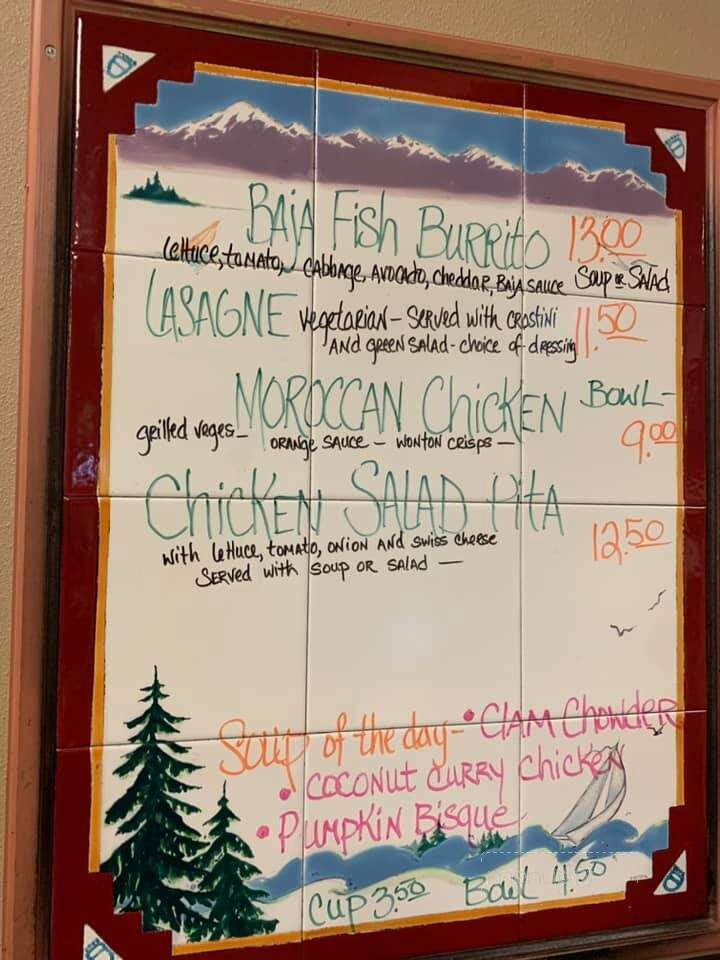 BAJA Fish BURRitO 13.00
lettuce, tOMATO, CAbbAGE, AVOCADO, cheddaR, BAJA SAUCE Soup OR SAlAD
LASAGNE vegetaRiAN – SERVED with CROStiNi 11.50
AND gREEN SALAD - choice of dRessiNg
MOROCCAN ChicKEN BOWL –
gRilled veges – ORANge SAUCE – WONtON CRisps – 9.00
ChicKEN SALAD PitA
with lettuce, tOMATO, ONiON AND swiss cheese 12.50
SERVED with SOUP OR SALAD —
Soup of the day – • ClAM ChowdeR
• COCONUT CURRY Chicken
• PUMPKiN Bisque
Cup 3.50 Bowl 4.50